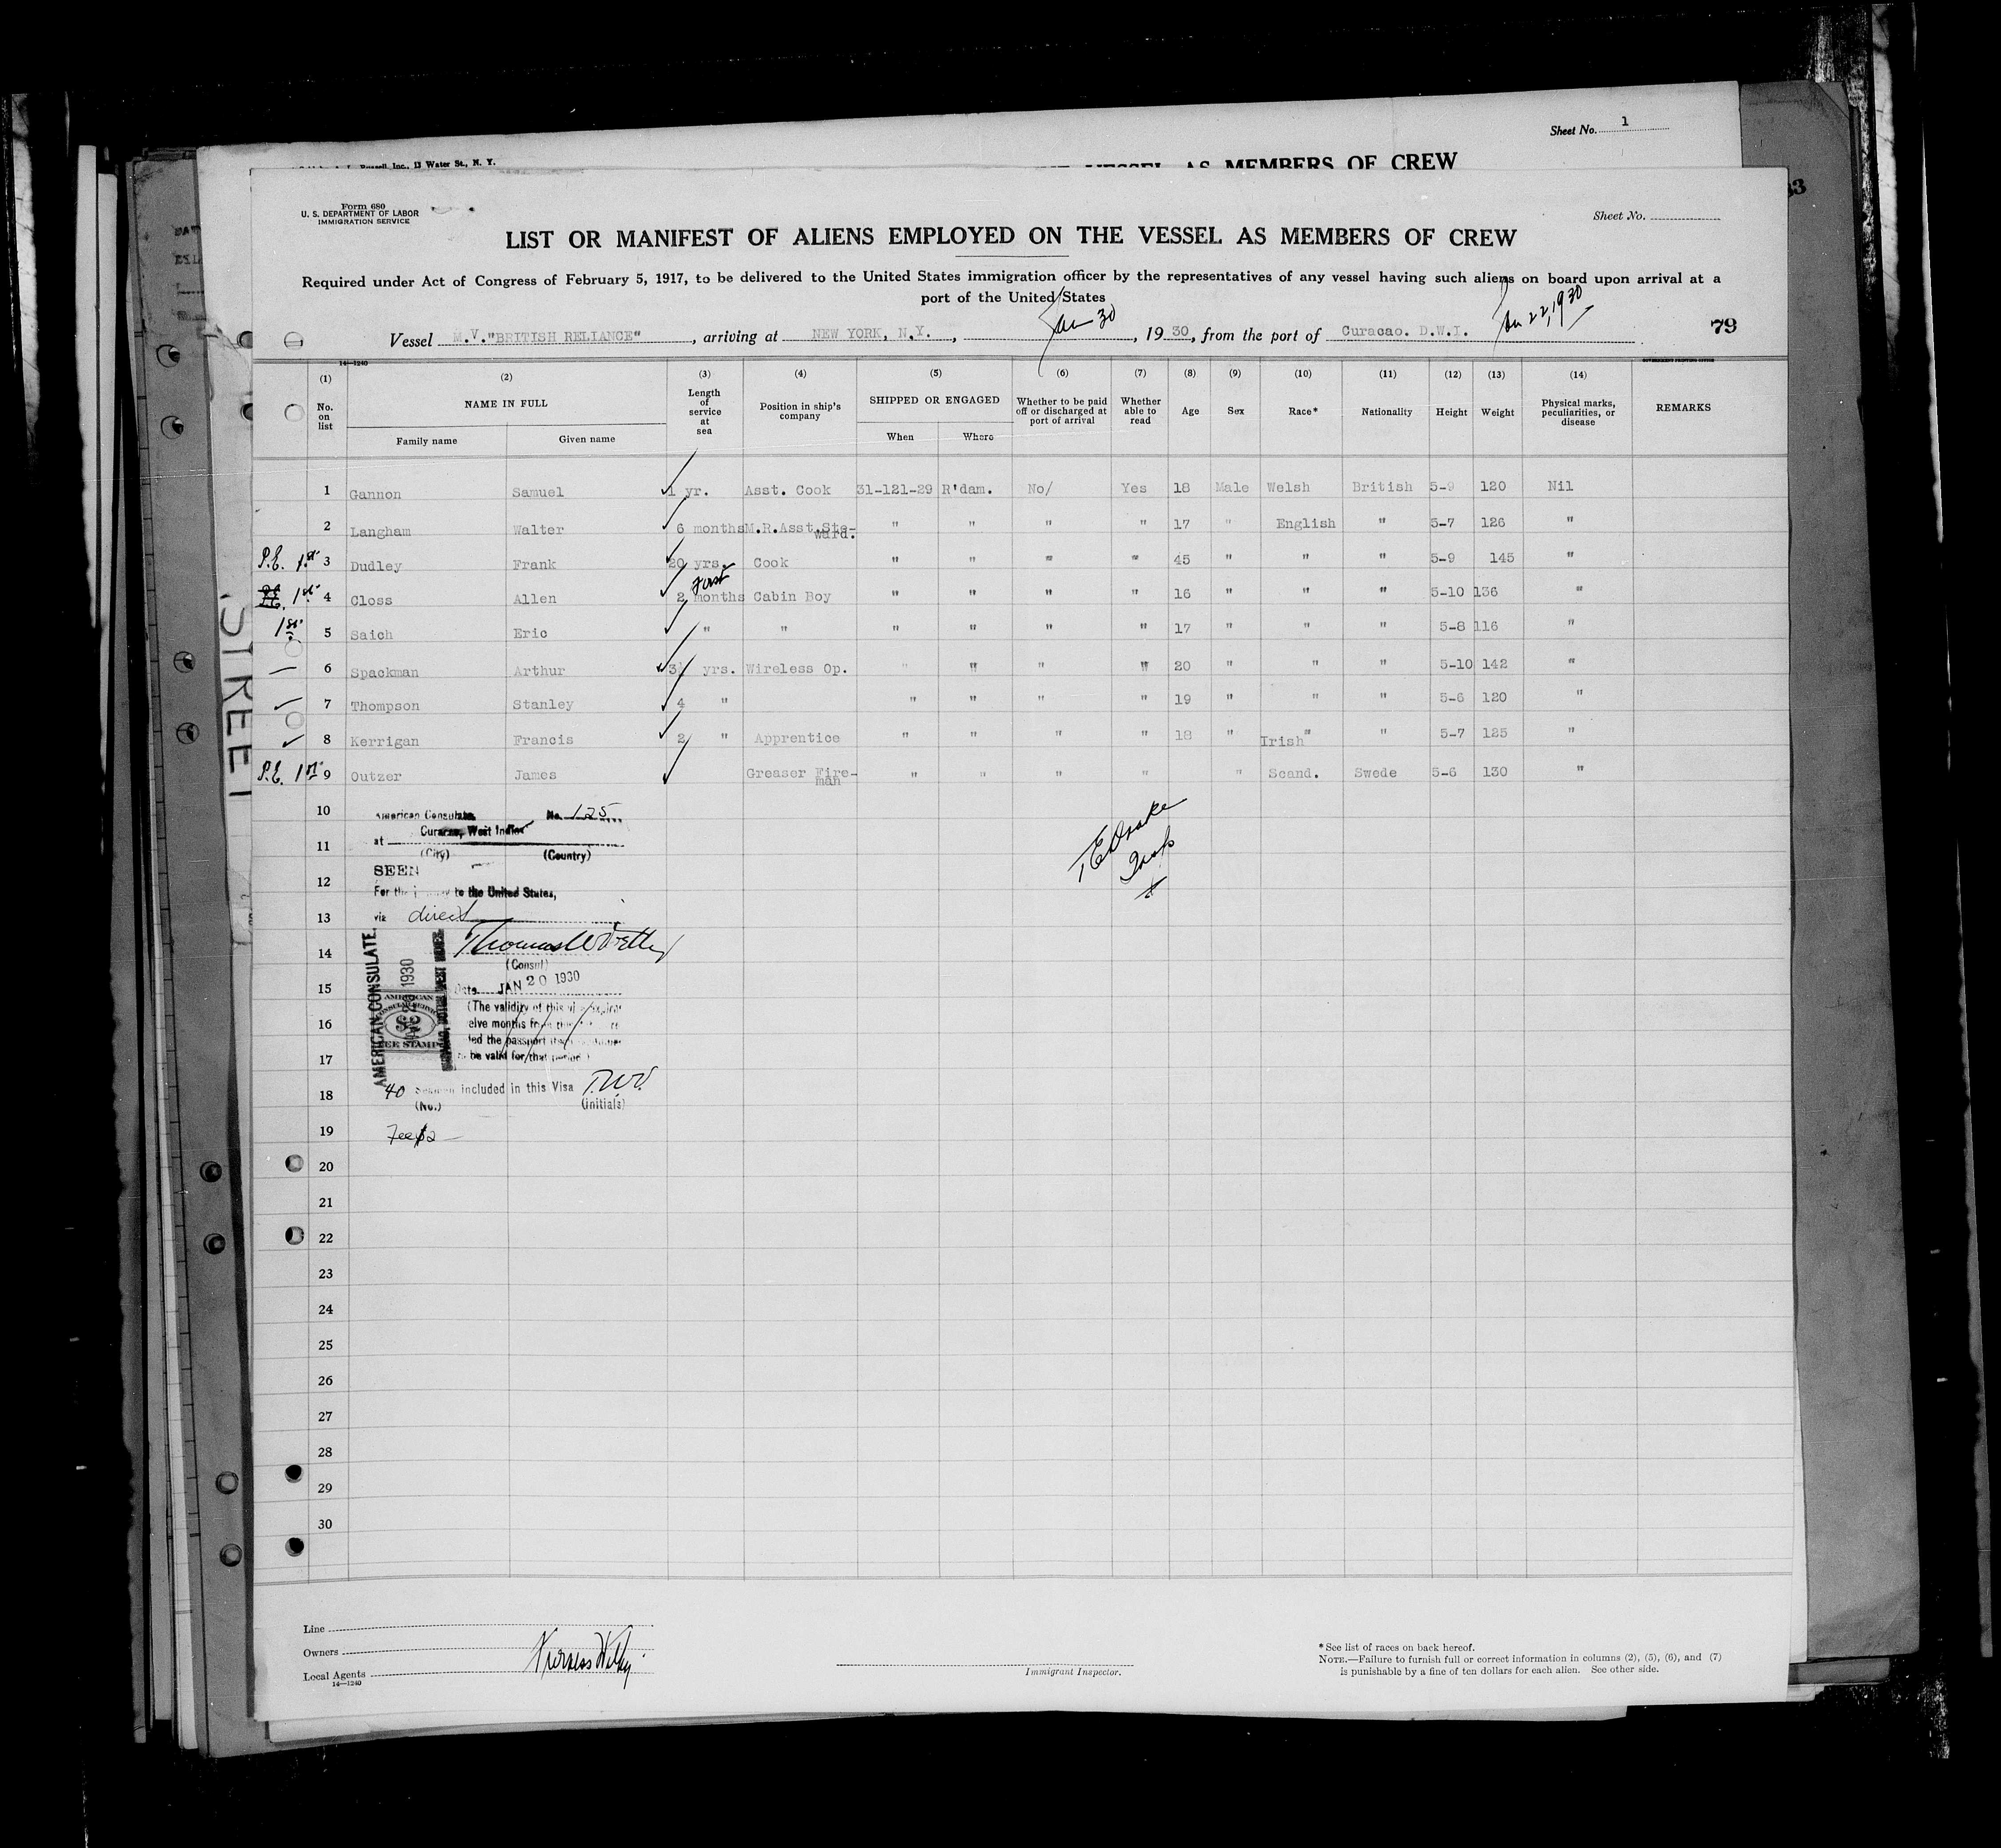 Inc., 13 Water St., N. Y.
Sheet No. 1
VESSEL AS MEMBERS OF CREW
Form 680
U. S. DEPARTMENT OF LABOR
IMMIGRATION SERVICE
Sheet No.
LIST OR MANIFEST OF ALIENS EMPLOYED ON THE VESSEL AS MEMBERS OF CREW
Required under Act of Congress of February 5, 1917, to be delivered to the United States immigration officer by the representatives of any vessel having such aliens on board upon arrival at a
port of the United States
Vessel M.V."BRITISH RELIANCE", arriving at NEW YORK, N.Y., Jan 30, 1930, from the port of Curacao. D.W.I. Jan 22, 1930
79
14—1240
(1) (2) (3) (4) (5) (6) (7) (8) (9) (10) (11) (12) (13) (14)
No. on list NAME IN FULL Length of service at sea Position in ship's company SHIPPED OR ENGAGED Whether to be paid off or discharged at port of arrival Whether able to read Age Sex Race* Nationality Height Weight Physical marks, peculiarities, or disease REMARKS
Family name Given name When Where
1 Gannon Samuel 1 yr. Asst. Cook 31-121-29 R'dam. No/ Yes 18 Male Welsh British 5-9 120 Nil
2 Langham Walter 6 months M.R.Asst.Ste-ward. " " " " 17 " English " 5-7 126 "
P.E. 1st 3 Dudley Frank 20 yrs. Cook " " " " 45 " " " 5-9 145 "
1st 4 Closs Allen First 2 months Cabin Boy " " " " 16 " " " 5-10 136 "
1st 5 Saich Eric " " " " " " 17 " " " 5-8 116 "
6 Spackman Arthur 3½ yrs. Wireless Op. " " " " 20 " " " 5-10 142 "
7 Thompson Stanley 4 " " " " " 19 " " " 5-6 120 "
8 Kerrigan Francis 2 " Apprentice " " " " 18 " Irish" " 5-7 125 "
P.E. 1st 9 Outzer James Greaser Fire-man " " " " " Scand. Swede 5-6 130 "
10
11
12
13
14
15
16
17
18
19
20
21
22
23
24
25
26
27
28
29
30
American Consulate, No. 125
at Curacao, West Indies
(City) (Country)
SEEN
For the journey to the United States,
via direct
(Consul)
Date JAN 20 1930
(The validity of this
months from
the passport
be valid for that period)
AMERICAN CONSULATE.
AMERICAN
FEE STAMP
40 Seamen included in this Visa T.W.V.
(No.) (Initials)
Fee $2
STREET
Line
Owners
Local Agents
14—1240
Furness Withy
Immigrant Inspector.
*See list of races on back hereof.
NOTE.—Failure to furnish full or correct information in columns (2), (5), (6), and (7)
is punishable by a fine of ten dollars for each alien. See other side.